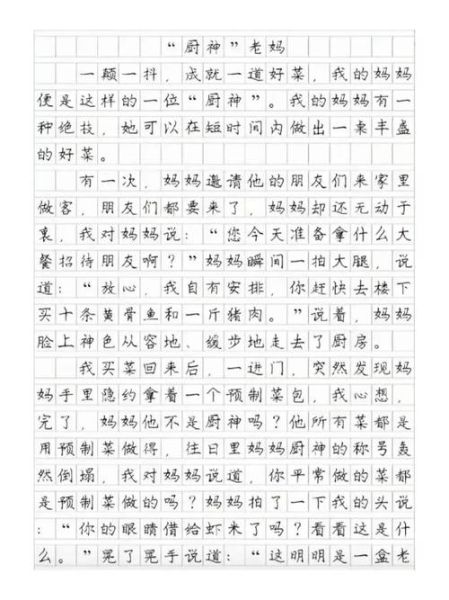 “厨神”老妈
一颠一抖，成就一道好菜，我的妈妈
便是这样的一位“厨神”。我的妈妈有一
种绝技，她可以在短时间内做出一桌丰盛
的好菜。
有一次，妈妈邀请他的朋友们来家里
做客，朋友们都要来了，妈妈却还无动于
衷，我对妈妈说：“您今天准备拿什么大
餐招待朋友啊？”妈妈瞬间一拍大腿，说
道：“放心，我自有安排，你赶快去楼下
买十条黄骨鱼和一斤猪肉。”说着，妈妈
脸上神色从容地、缓步地走去了厨房。
我买菜回来后，一进门，突然发现妈
妈手里隐约拿着一个预制菜包，我心想，
完了，妈妈他不是厨神吗？他所有菜都是
用预制菜做得，往日里妈妈厨神的称号轰
然倒塌，我对妈妈说道，你平常做的菜都
是预制菜做的吗？妈妈拍了一下我的头说
：“你的眼睛借给虾来了吗？看看这是什
么。”晃了晃手说道：“这明明是一盒老